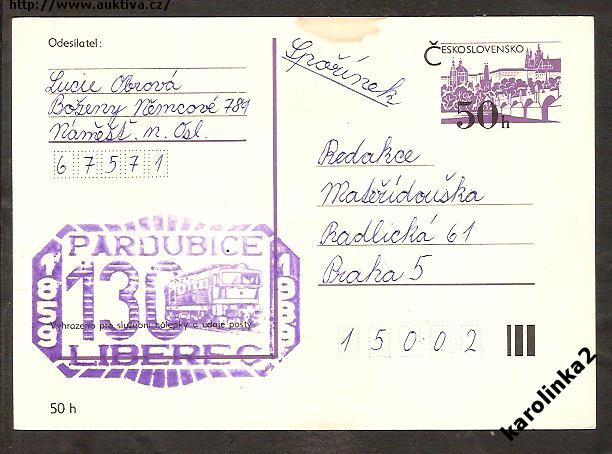 http://www.auktiva.cz/
Odesílatel:
Lucie Obrová
Boženy Němcové 784
Náměšť. n. Osl.
67571
Spořínek
ČESKOSLOVENSKO
50h
Redakce
Mateřídouška
Radlická 61
Praha 5
15002
PARDUBICE
1859
130
1989
Vyhrazeno pro služební nálepky a údaje pošty
LIBEREC
50 h
karolinka2